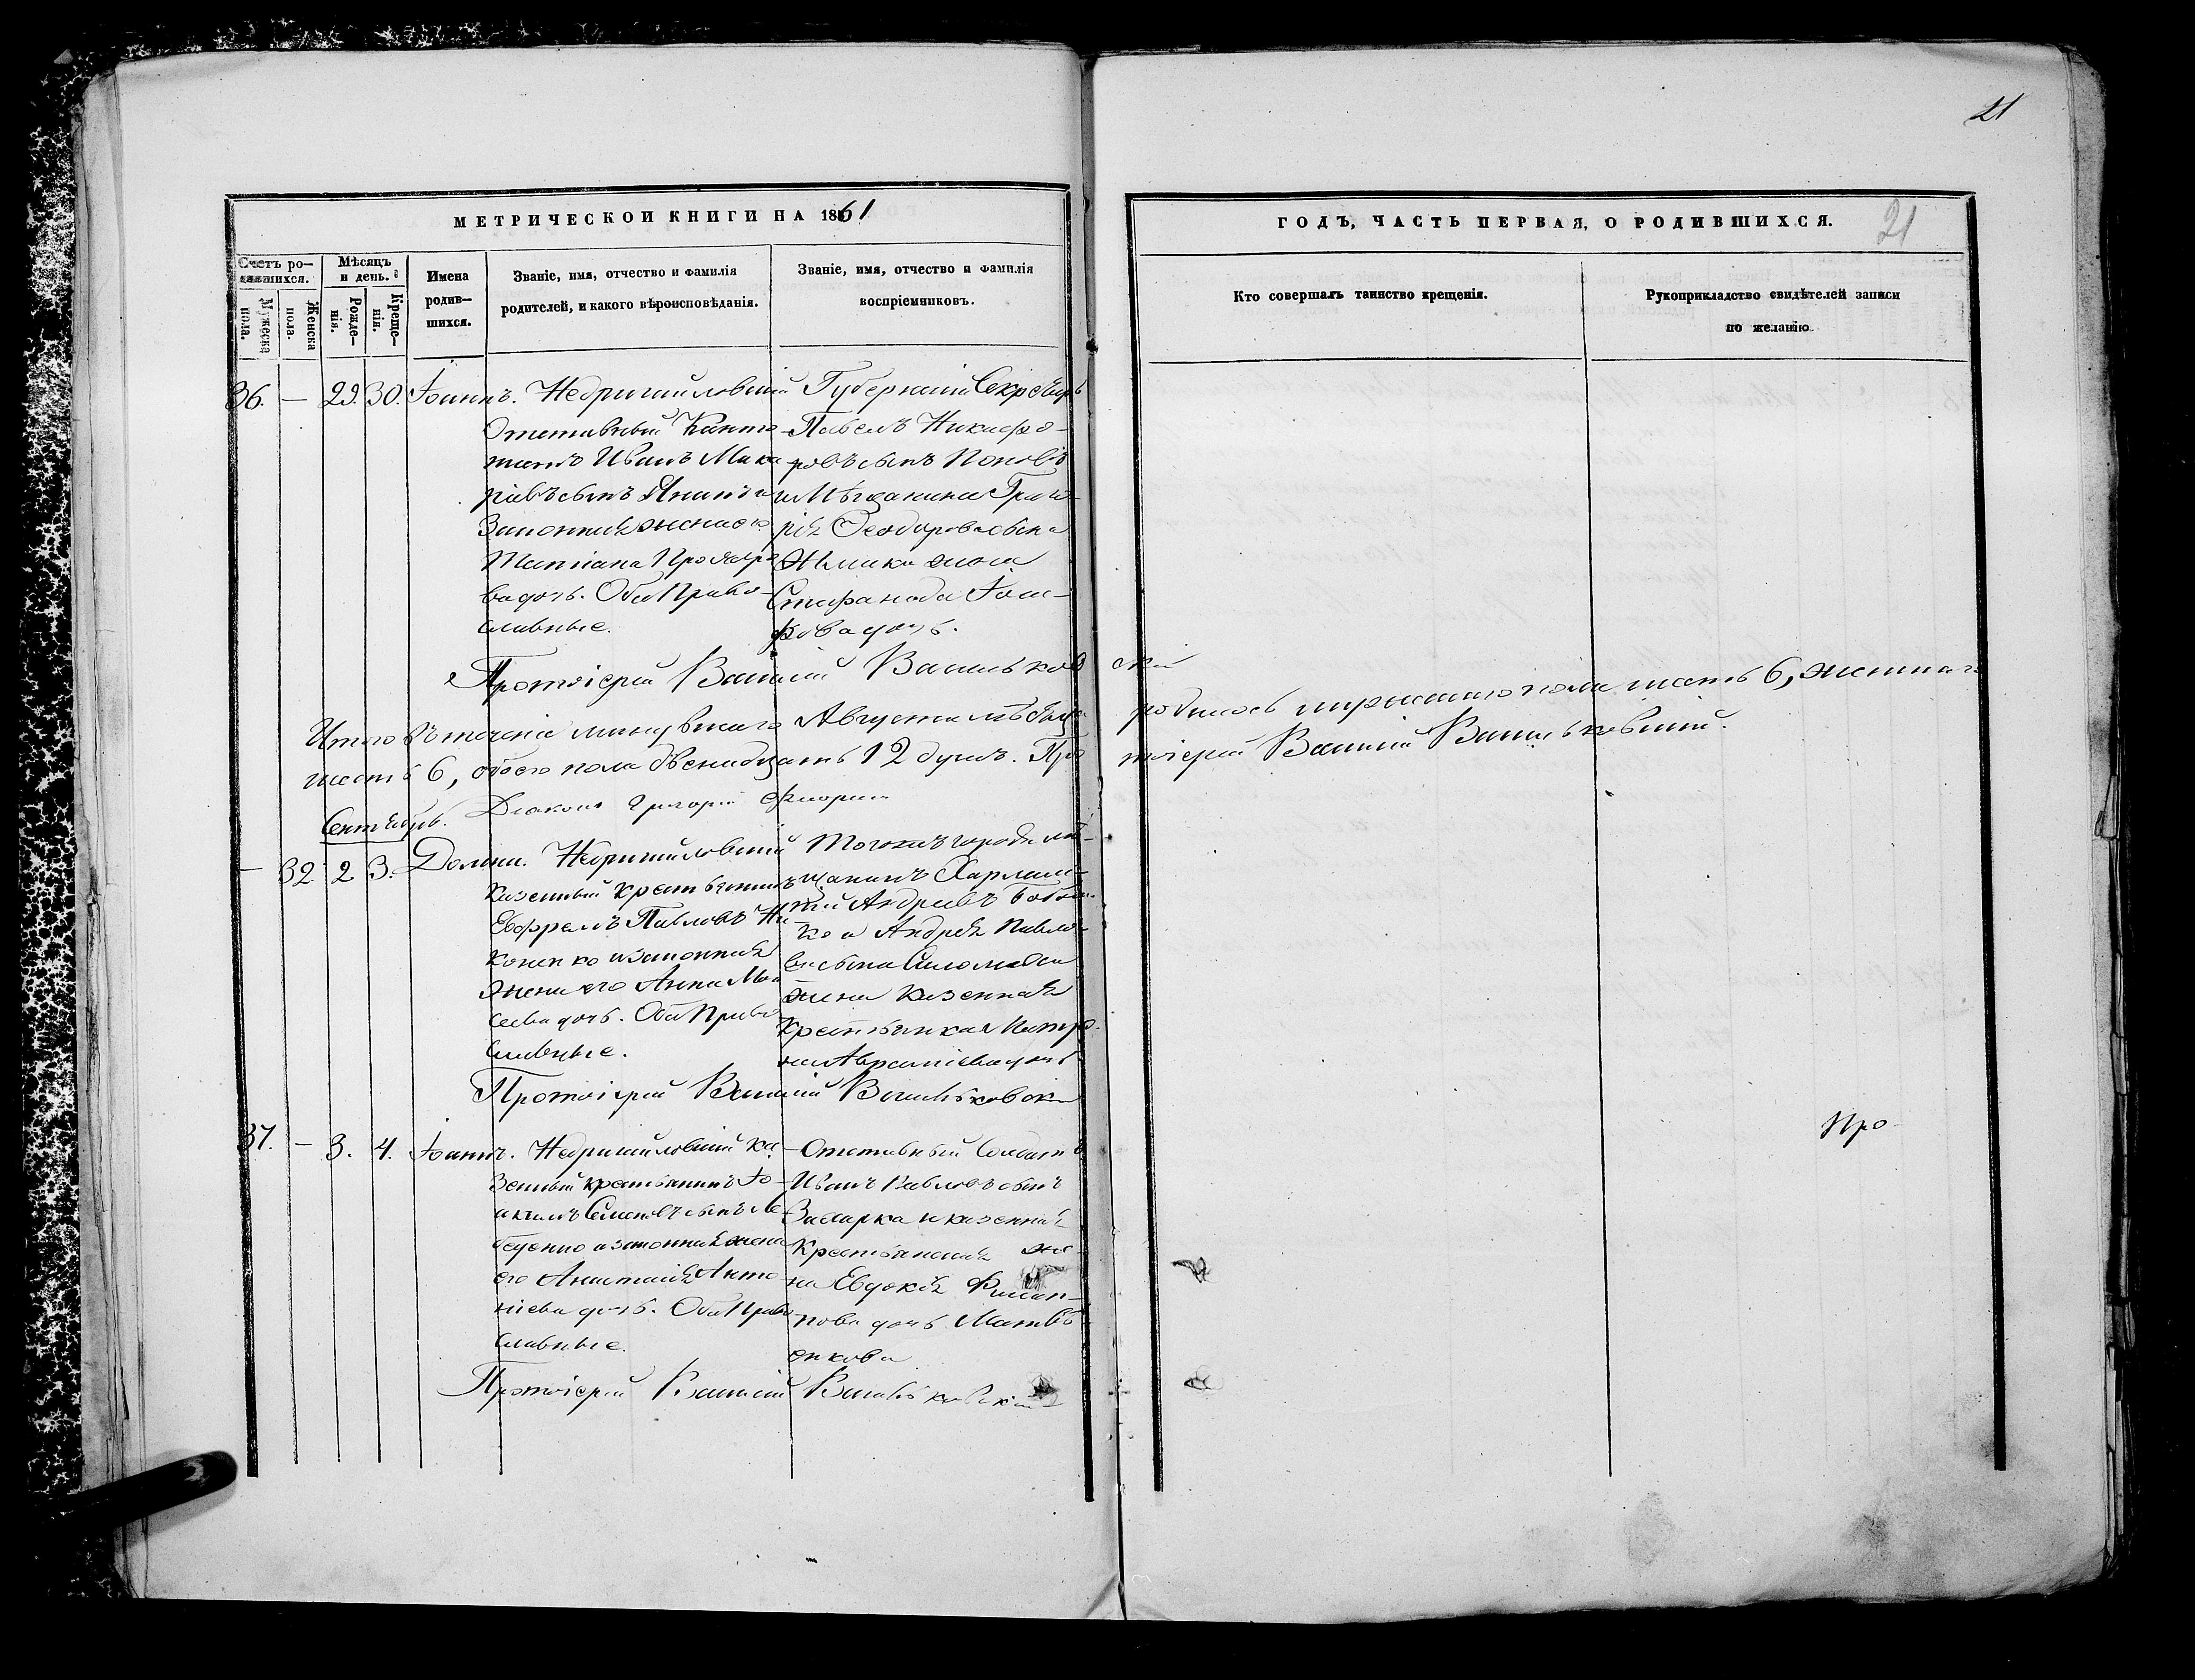 21
МЕТРИЧЕСКОЙ КНИГИ НА 1861
ГОДЪ, ЧАСТЬ ПЕРВАЯ, О РОДИВШИХСЯ.
21
Счетъ родившихся.
Мужеска пола.
Женска пола.
Мѣсяцъ и день.
Рожденія.
Крещенія.
Имена родившихся.
Званіе, имя, отчество и фамилія
родителей, и какого вѣроисповѣданія.
Званіе, имя, отчество и фамилія
воспріемниковъ.
Кто совершалъ таинство крещенія.
Рукоприкладство свидѣтелей записи
по желанію.
36. — 29. 30. Іоаннъ.
Недригайловскій
Отставный Канто
нистъ Иванъ Мака
ріевъ сынъ
Законная жена его
Татіана Прохоро
ва дочь. Оба Право-
славные.
Губернскій Секретарь
Павелъ Никифо-
ровъ сынъ Поповъ
и Мѣщанина Григо-
рія Ѳеодорова сына
жена
Стефанида Іоси-
фова дочь.
Протоіерей Василій Васильковскій
Итого въ теченіе минувшаго Августа мѣсяца родилось мужескаго пола шесть 6, женскаго
шесть 6, обоего пола двенадцать 12 душъ. Протоіерей Василій Васильковскій.
Діаконъ Григорій
Сентябрь.
— 32 2 3. Домна.
Недригайловскій
Казенный крестьянинъ
Евфремъ Павловъ Ни
коненко и законная
жена его Анна Мои
сеева дочь. Оба Право
славные.
Тогожъ города мѣ-
щанинъ Харлам-
пій Андреевъ
ко и Андрея Павло-
ва сына
жена казенная
Крестьянка Матро-
на Авраміева дочь
Протоіерей Василій Васильковскій
37. — 3. 4. Іоаннъ.
Недригайловскій Ка
зенный крестьянинъ Іо
акимъ Семеновъ сынъ Ле
беденко и законная жена
его Анастасія Анто
ніева дочь. Оба Право
славные.
Отставный Солдатъ
Иванъ Павловъ сынъ
и казенная
Крестьянская же-
на Евдокія Филип-
пова дочь Матвѣ
енкова
Протоіерей Василій Васильковскій
Про-